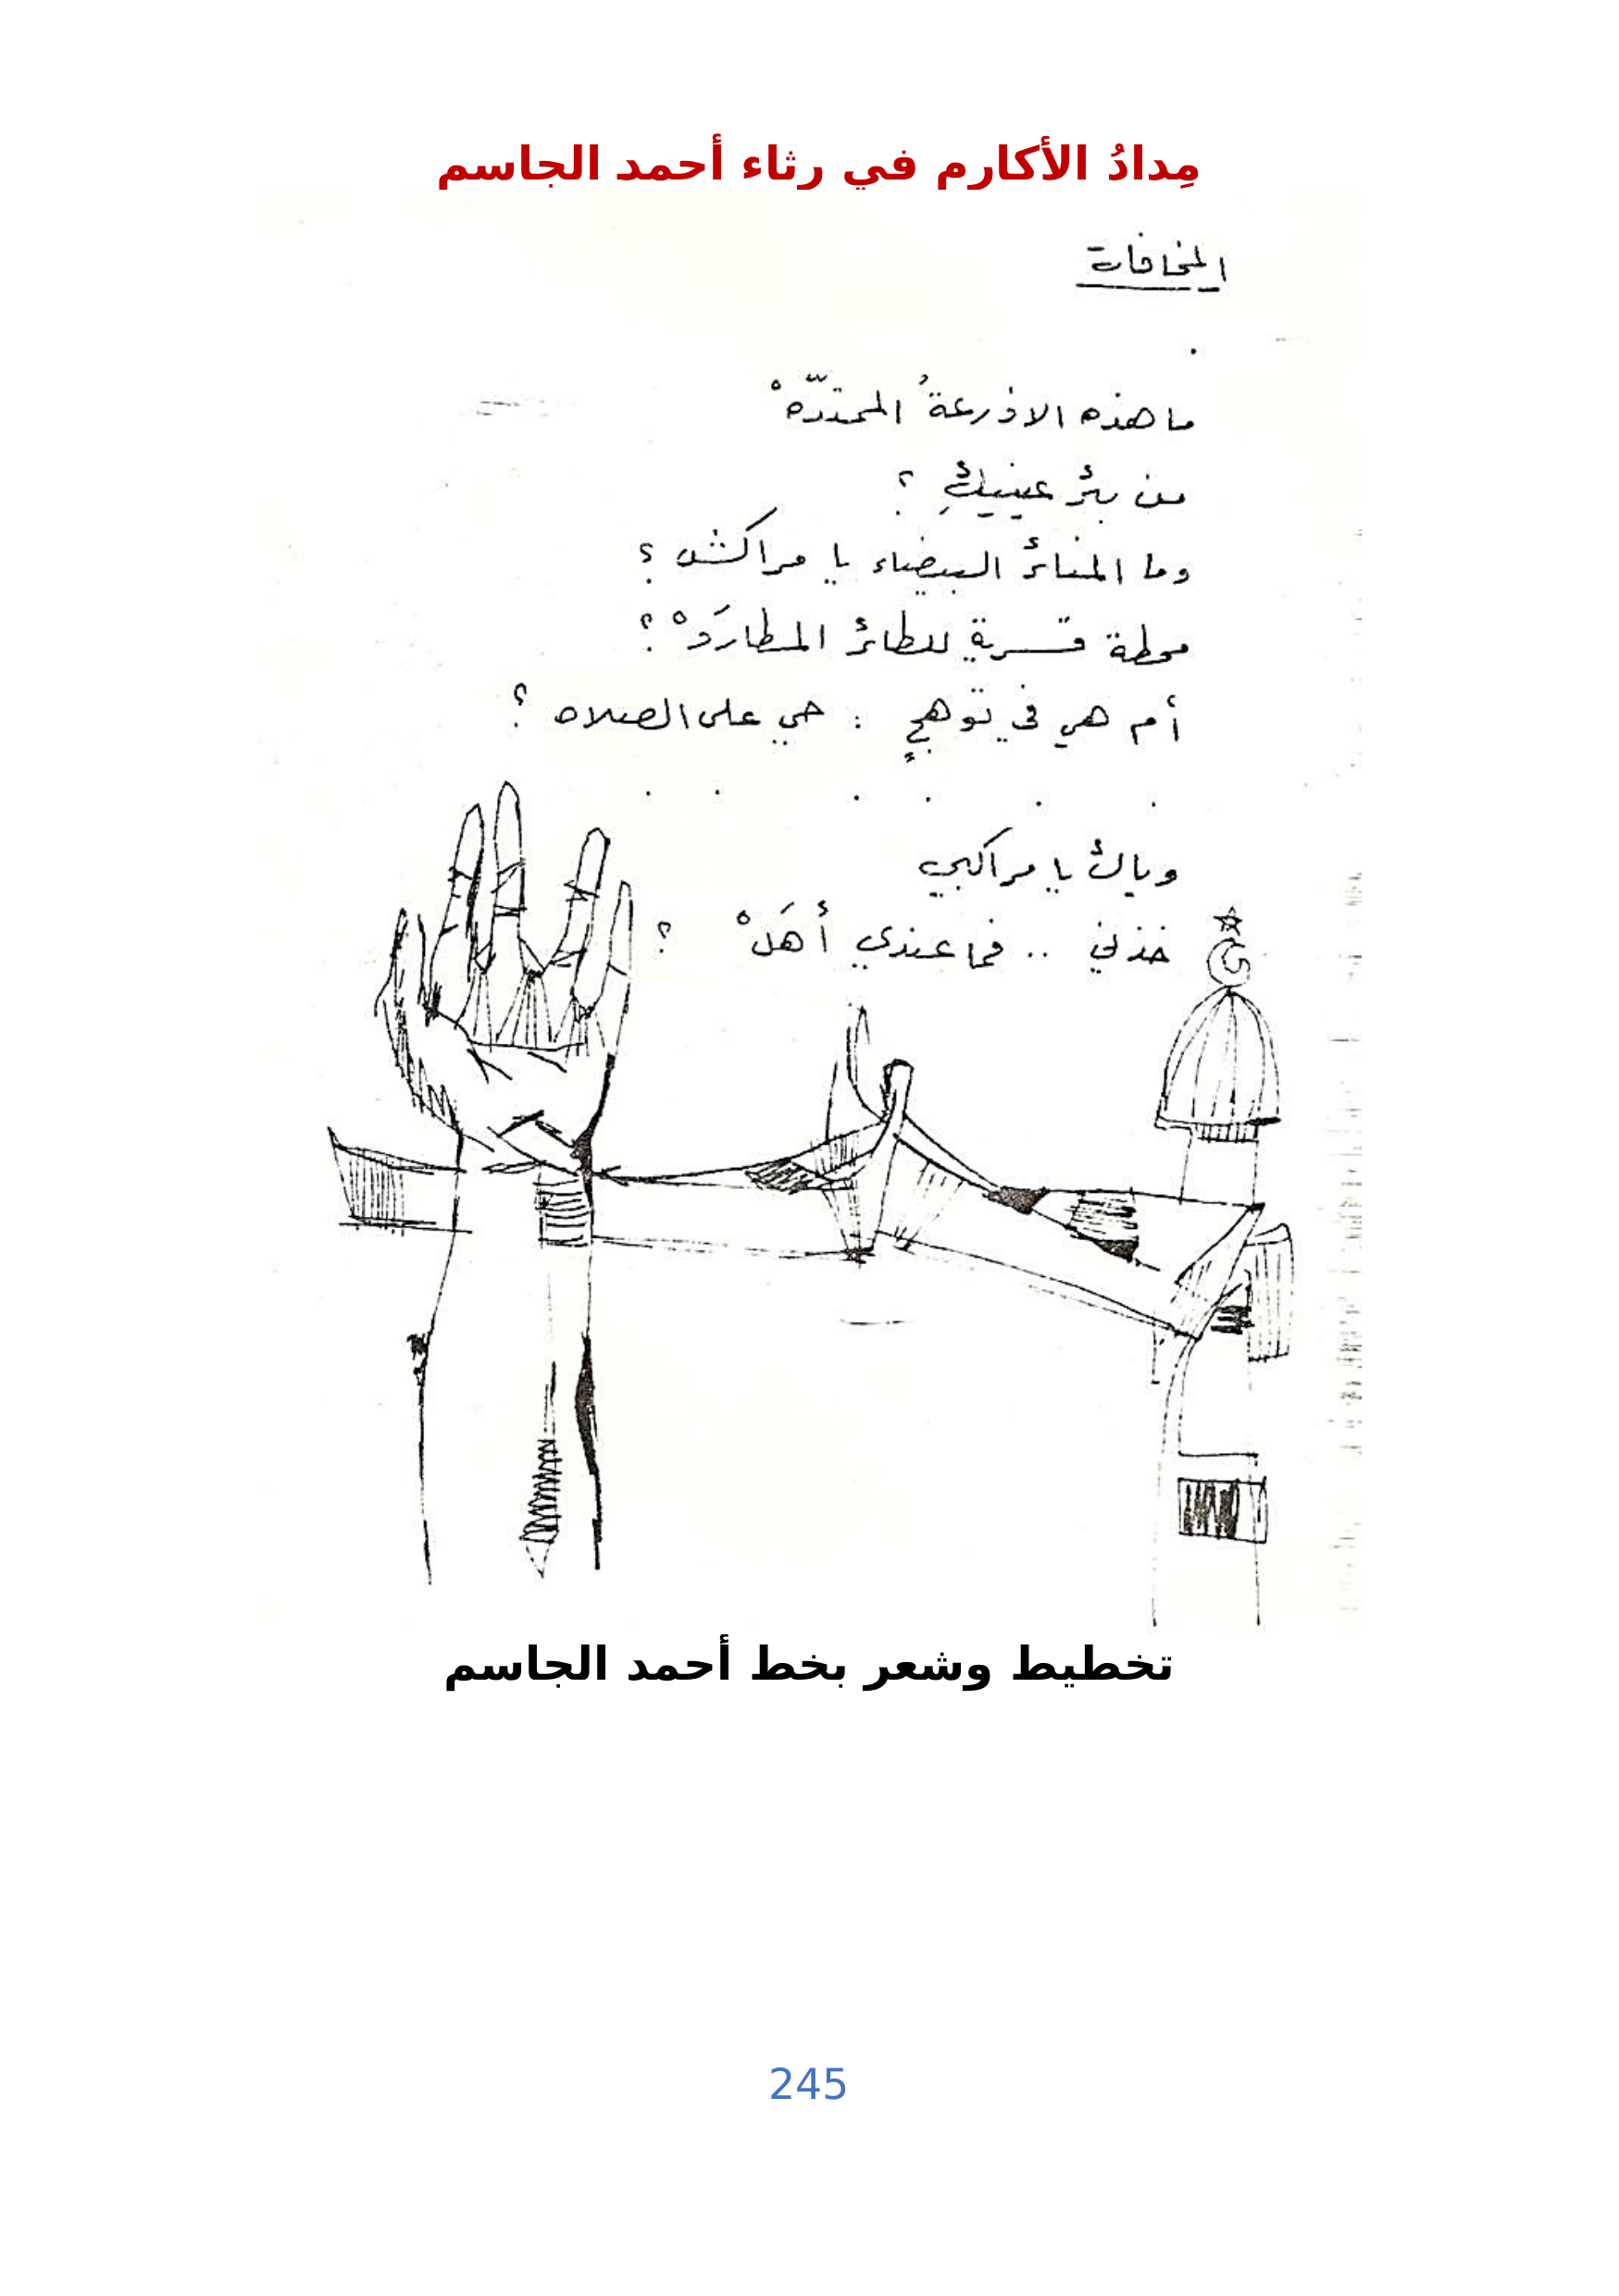 مِدادُ الأكارم في رثاء أحمد الجاسم
المخافات
ما هذه الاذرعةُ الممتدّهْ
من بئر عينيكِ ؟
وما المنائر البيضاء يا مراكش ؟
محطة قسرية للطائر المطارَدْ ؟
أم هي في توهجٍ : حي على الصلاه ؟
. . . . . .
وياك يا مراكبي
خذني .. فما عندي أهَلْ ؟
تخطيط وشعر بخط أحمد الجاسم
245